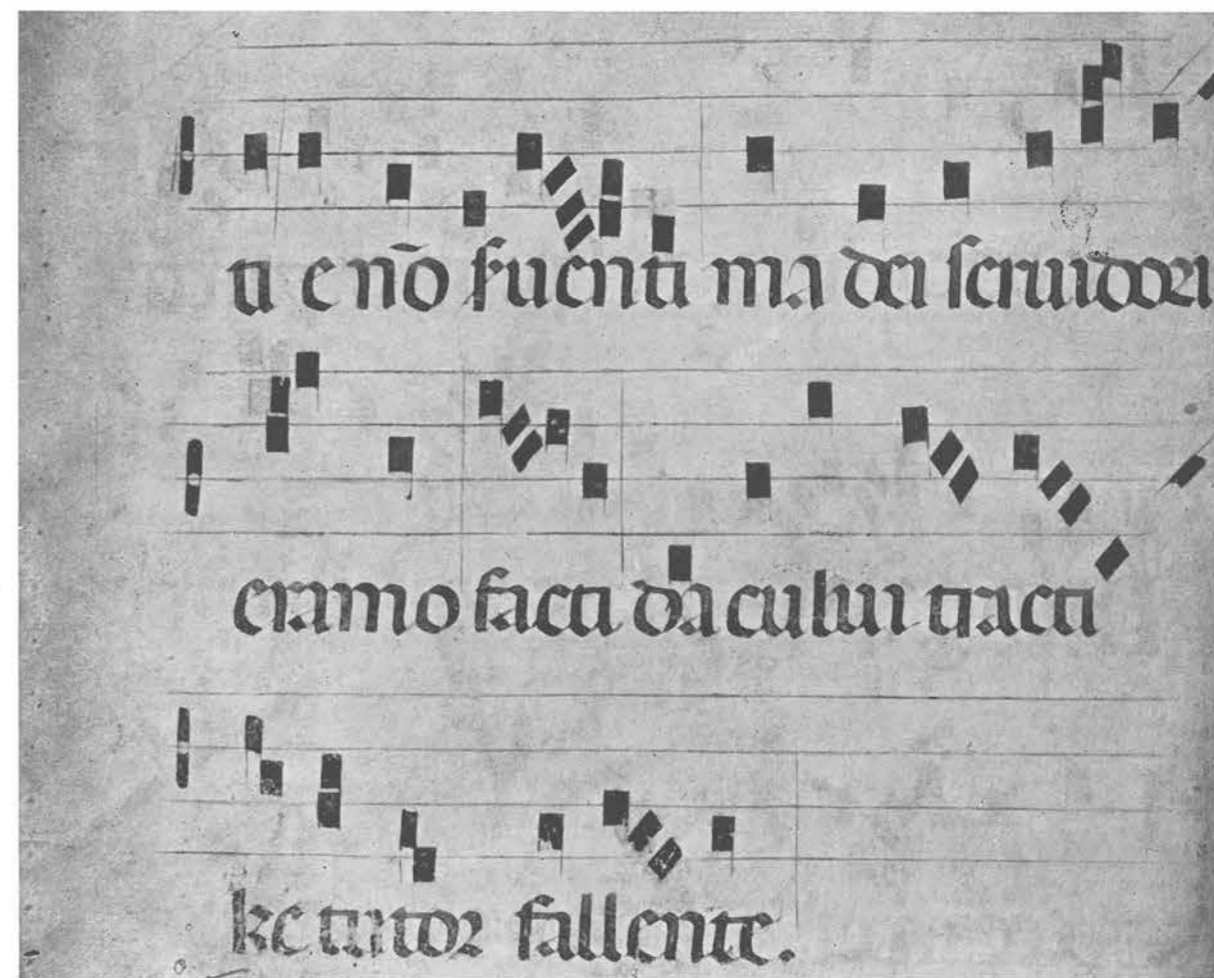 ti e nõ fuenti ma dei seruidori
eramo facti da cului tracti
ke tuttor fallente.